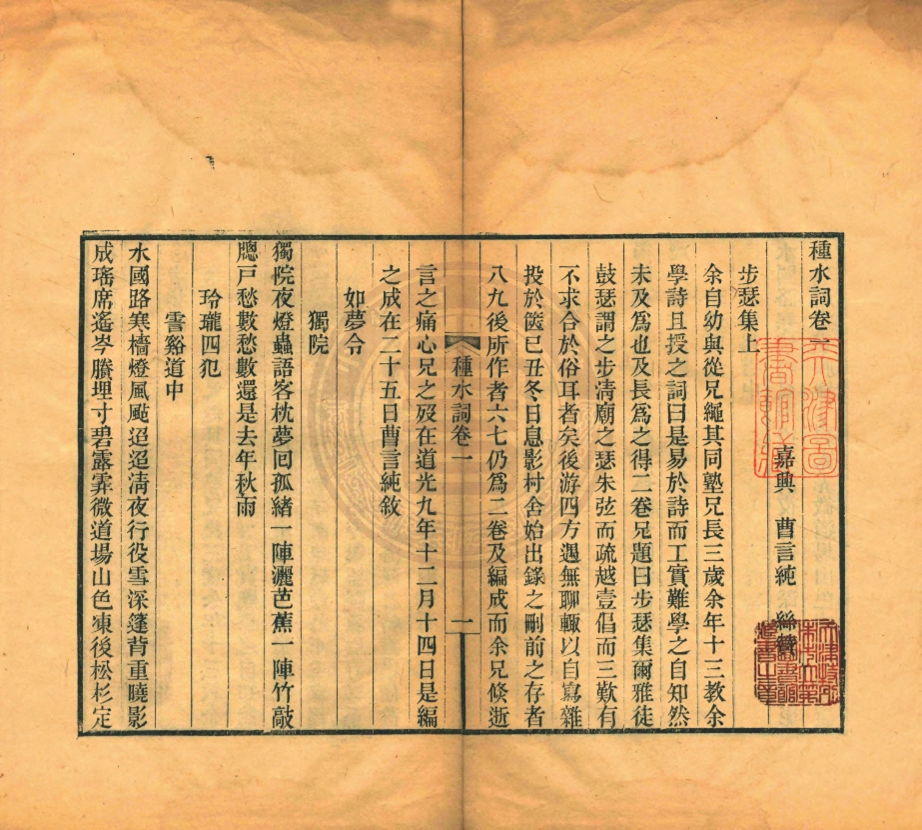 種水詞卷一
嘉興 曹言純 絲贊
步瑟集上
余自幼與從兄繩其同塾兄長三歲余年十三教余
學詩且授之詞曰是易於詩而工實難學之自知然
未及爲也及長爲之得二卷兄題曰步瑟集爾雅徒
鼓瑟謂之步清廟之瑟朱弦而疏越壹倡而三歎有
不求合於俗耳者矣後游四方遇無聊輒以自寫雜
投於篋已丑冬日息影村舍始出錄之刪前之存者
八九後所作者六七仍爲二卷及編成而余兄倐逝
種水詞卷一
一
言之痛心兄之歿在道光九年十二月十四日是編
之成在二十五日曹言純敘
如夢令
獨院
獨院夜燈蟲語客枕夢回孤緒一陣灑芭蕉一陣竹敲
牕戸愁數愁數還是去年秋雨
玲瓏四犯
霅谿道中
水國路寒檣燈風颭迢迢淸夜行役雪深篷背重曉影
成瑤席遙岑賸埋寸碧露霏微道場山色凍後松杉定